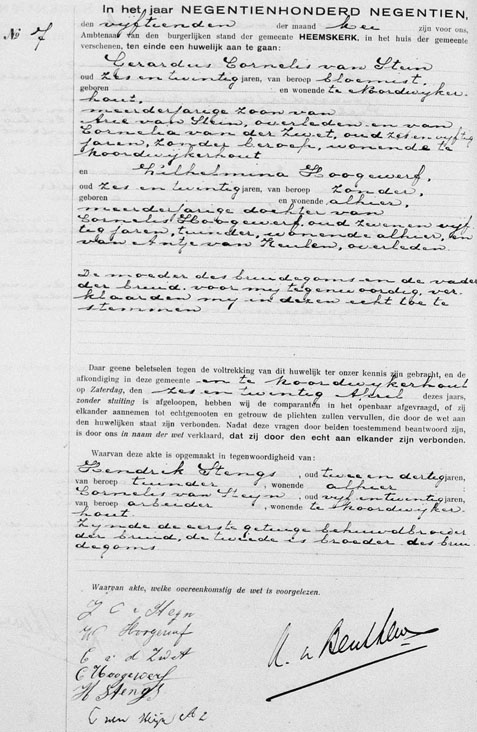 In het jaar NEGENTIENHONDERD NEGENTIEN,
No 7
den vijftienden der maand Mei zijn voor ons,
Ambtenaar van den burgerlijken stand der gemeente HEEMSKERK, in het huis der gemeente
verschenen, ten einde een huwelijk aan te gaan:
Gerardus Cornelis van Stein
oud zes en twintig jaren, van beroep bloemist,
geboren en wonende te Noordwijker-
hout,
meerderjarige zoon van
Arie van Stein, overleden en van
Cornelia van der Zwet, oud zes en vijftig
jaren, zonder beroep, wonende te
Noordwijkerhout
en Wilhelmina Hoogewerf,
oud zes en twintig jaren, van beroep zonder,
geboren en wonende alhier,
meerderjarige dochter van
Cornelis Hoogewerf, oud zeven en vijf-
tig jaren, tuinder, wonende alhier, en
van Antje van Keulen, overleden
De moeder des bruidegoms en de vader
der bruid, voor mij tegenwoordig ver-
klaarden mij in dezen echt toe te
stemmen
Daar geene beletselen tegen de voltrekking van dit huwelijk ter onzer kennis zijn gebracht, en de
afkondiging in deze gemeente en te Noordwijkerhout
op Zaterdag, den zes en twintig April dezes jaars,
zonder stuiting is afgeloopen, hebben wij de comparanten in het openbaar afgevraagd, of zij
elkander aannemen tot echtgenooten en getrouw de plichten zullen vervullen, die door de wet aan
den huwelijken staat zijn verbonden. Nadat deze vragen door beiden toestemmend beantwoord zijn,
is door ons in naam der wet verklaard, dat zij door den echt aan elkander zijn verbonden.
Waarvan deze akte is opgemaakt in tegenwoordigheid van:
Hendrik Stengs, oud twee en dertig jaren,
van beroep tuinder, wonende alhier
Cornelis van Steyn, oud vijf en twintig jaren,
van beroep arbeider, wonende te Noordwijker-
hout
Zijnde de eerste getuige behuwdbroeder
der bruid, de tweede is broeder des brui-
degoms
Waarvan akte, welke overeenkomstig de wet is voorgelezen.
G C v Steyn
W Hoogewerf
C v d Zwet
C Hoogewerf
H Stengs
C van Steijn Az